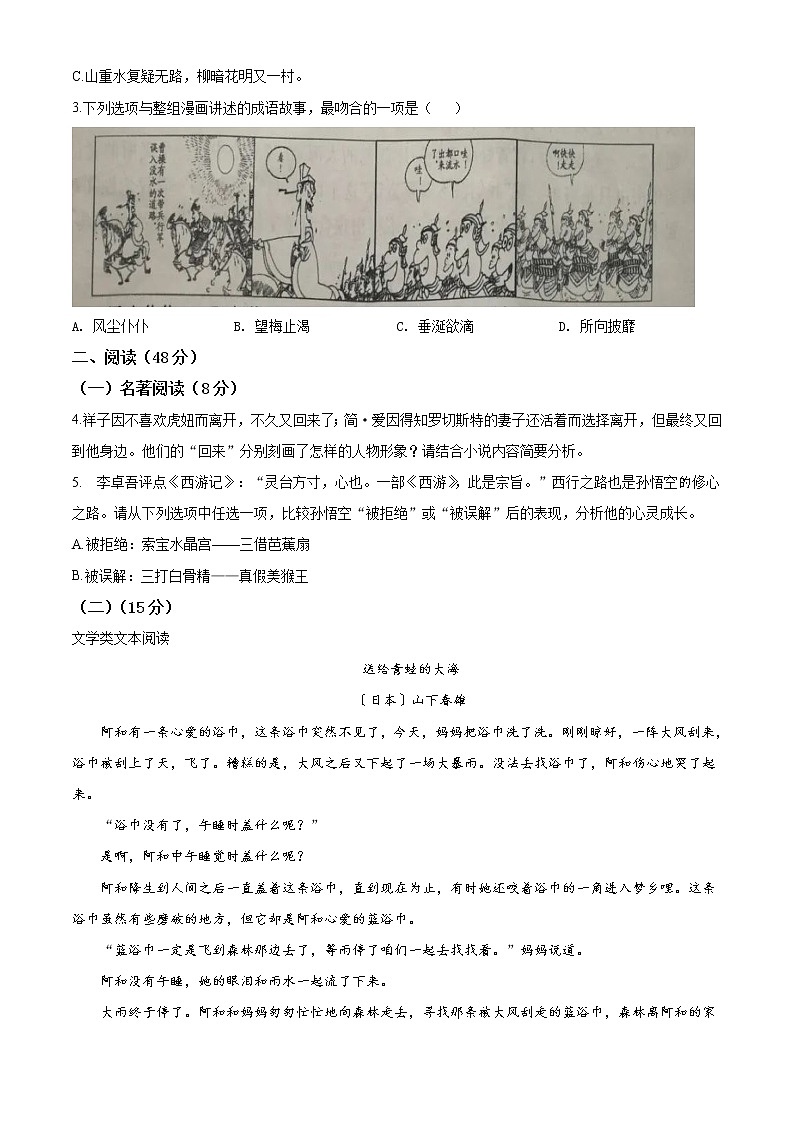 C.山重水复疑无路，柳暗花明又一村。
3.下列选项与整组漫画讲述的成语故事，最吻合的一项是（　　）
曹操有一次带兵行军，
误入没水的道路
看！
哇！
哇！口都出了
流水来，
快快走啊
走！
A. 风尘仆仆　B. 望梅止渴　C. 垂涎欲滴　D. 所向披靡
二、阅读（48分）
（一）名著阅读（8分）
4.祥子因不喜欢虎妞而离开，不久又回来了；简·爱因得知罗切斯特的妻子还活着而选择离开，但最终又回
到他身边。他们的“回来”分别刻画了怎样的人物形象？请结合小说内容简要分析。
5. 李卓吾评点《西游记》：“灵台方寸，心也。一部《西游》，此是宗旨。”西行之路也是孙悟空的修心
之路。请从下列选项中任选一项，比较孙悟空“被拒绝”或“被误解”后的表现，分析他的心灵成长。
A.被拒绝：索宝水晶宫——三借芭蕉扇
B.被误解：三打白骨精——真假美猴王
（二）（15分）
文学类文本阅读
送给青蛙的大海
〔日本〕山下春雄
阿和有一条心爱的浴巾，这条浴巾突然不见了，今天，妈妈把浴巾洗了洗。刚刚晾好，一阵大风刮来，
浴巾被刮上了天，飞了。糟糕的是，大风之后又下起了一场大暴雨。没法去找浴巾了，阿和伤心地哭了起
来。
“浴巾没有了，午睡时盖什么呢？”
是啊，阿和中午睡觉时盖什么呢？
阿和降生到人间之后一直盖着这条浴巾，直到现在为止，有时她还咬着浴巾的一角进入梦乡哩。这条
浴巾虽然有些磨破的地方，但它却是阿和心爱的篮浴巾。
“篮浴巾一定是飞到森林那边去了，等雨停了咱们一起去找找看。”妈妈说道。
阿和没有午睡，她的眼泪和雨水一起流了下来。
大雨终于停了。阿和和妈妈匆匆忙忙地向森林走去，寻找那条被大风刮走的篮浴巾，森林离阿和的家